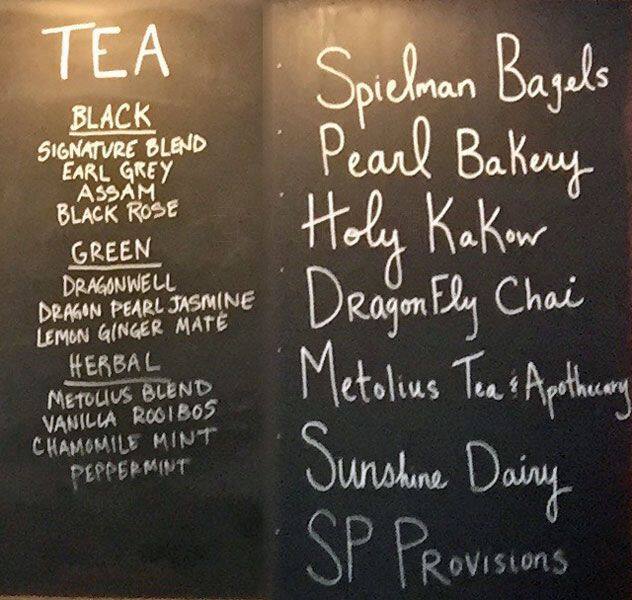 TEA
BLACK
SIGNATURE BLEND
EARL GREY
ASSAM
BLACK ROSE
GREEN
DRAGONWELL
DRAGON PEARL JASMINE
LEMON GINGER MATÉ
HERBAL
METOLIUS BLEND
VANILLA ROOIBOS
CHAMOMILE MINT
PEPPERMINT
Spielman Bagels
Pearl Bakery
Holy Kakow
DragonFly Chai
Metolius Tea & Apothecary
Sunshine Dairy
SP Provisions